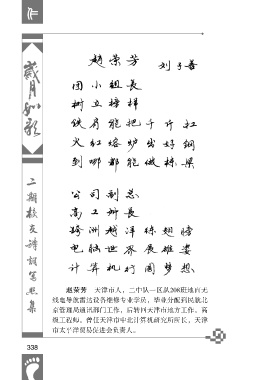 作
岁月如歌
二期校友诗词笔墨集
赵景芳 刘子善
团小组长
树立榜样
铁肩能把千斤扛
火红熔炉出好钢
到哪都能做栋梁
公司副总
高工所长
跨洲越洋练翅膀
电脑世界展雄姿
计算机打圆梦想
赵景芳 天津市人,二中队一区队208班地面无
线电导航雷达设备维修专业学员,毕业分配到民航北
京管理局通讯部门工作,后转回天津市地方工作。高
级工程师。曾任天津市中北计算机研究所所长,天津
市太平洋贸易促进会负责人。
338